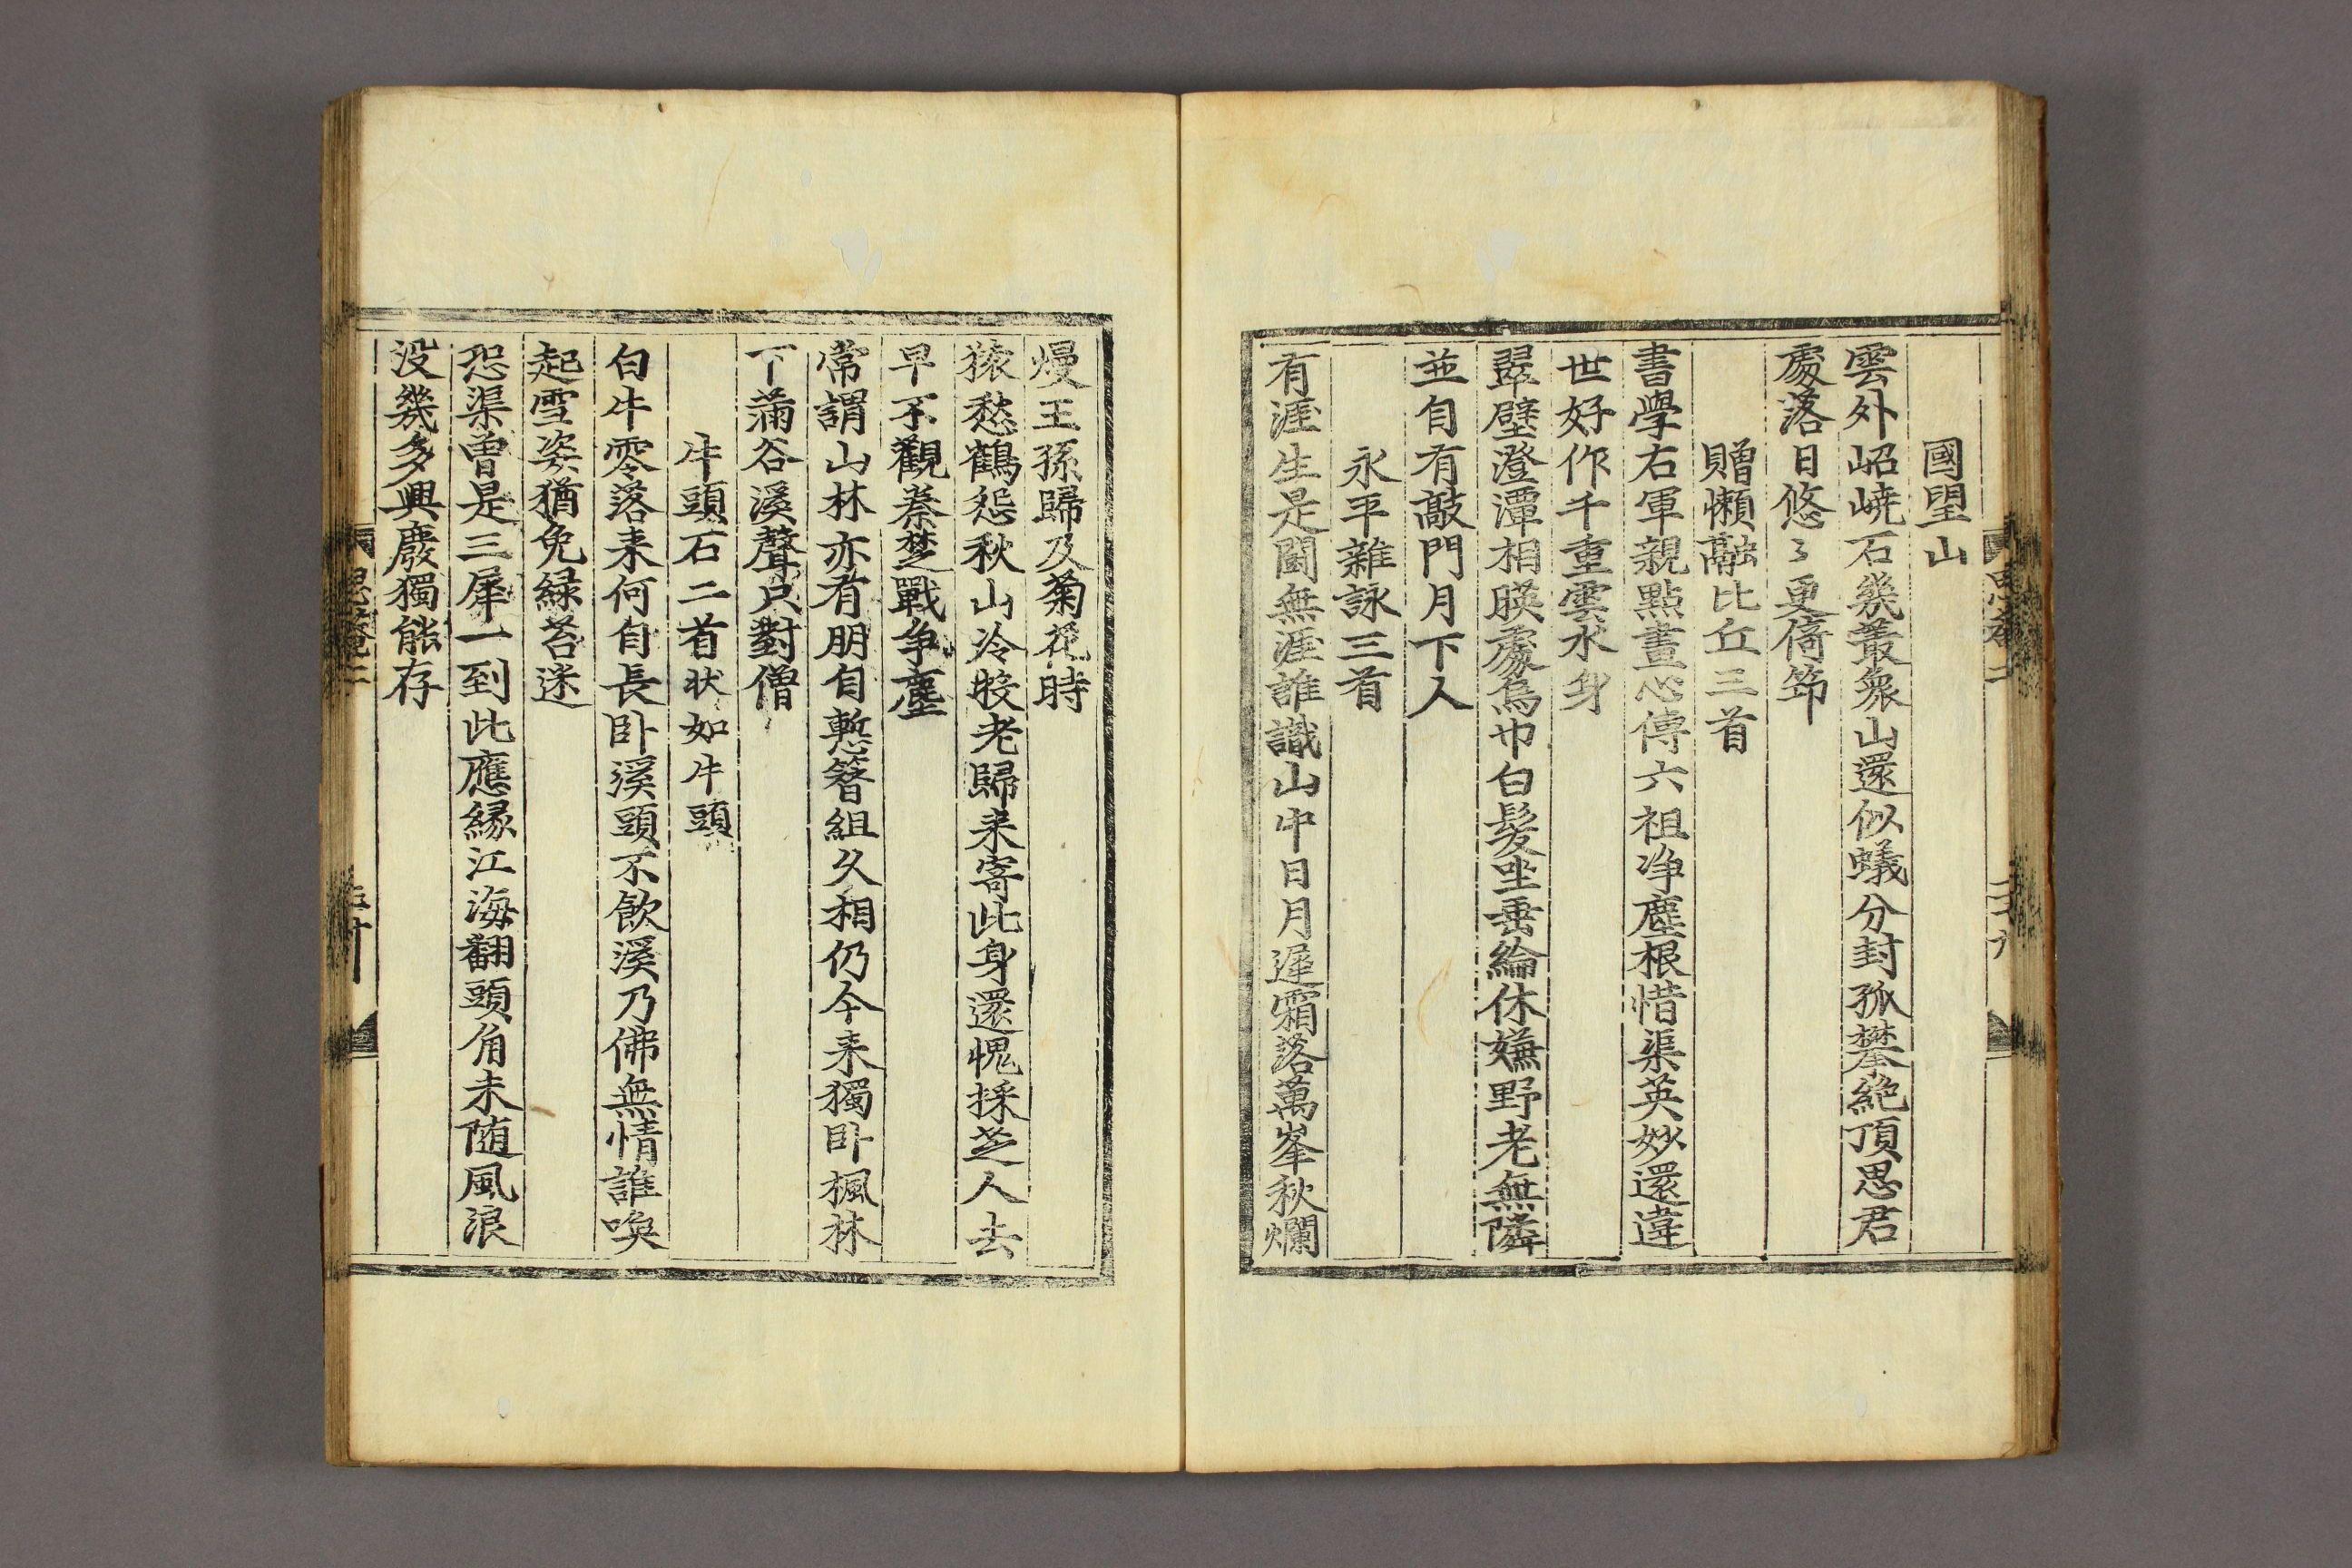 國望山
雲外岧嶢石幾叢衆山還似蟻分封孤攀絶頂思君
處落日悠〻更倚笻
贈懶融比丘三首
書學右軍親點畫心傳六祖净塵根惜渠英妙還違
世好作千重雲水身
翠壁澄潭相暎處烏巾白髮坐垂綸休嫌野老無隣
並自有敲門月下人
永平雜詠三首
有涯生是閙無涯誰識山中日月遲霜落萬峯秋爛
熳王孫歸及菊花時
猿愁鶴怨秋山冷投老歸来寄此身還愧採芝人去
早不觀秦楚戰争塵
常謂山林亦有朋自慙簪組久相仍今来獨卧楓林
下滿谷溪聲只對僧
牛頭石二首状如牛頭
白牛零落来何自長卧溪頭不飲溪乃佛無情誰喚
起雪姿猶免緑苔迷
恐渠曽是三犀一到此應縁江海翻頭角未随風浪
没幾多興廢獨能存